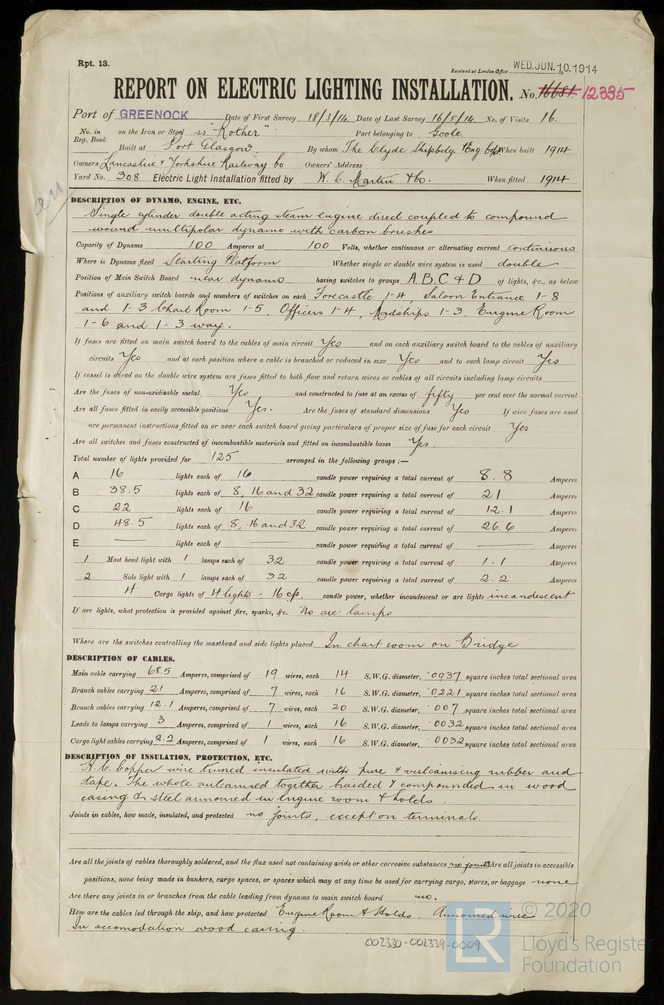 Rpt. 13.
Received at London Office WED. JUN. 10. 1914
REPORT ON ELECTRIC LIGHTING INSTALLATION. No. 16681 12335
Port of GREENOCK Date of First Survey 18/3/14 Date of Last Survey 16/5/14 No. of Visits 16.
No. in Reg. Book on the Iron or Steel ss "Rother" Port belonging to Goole
Built at Port Glasgow By whom The Clyde Shipbdg. & Eng Co When built 1914
Owners Lancashire & Yorkshire Railway Co Owners' Address
Yard No. 308 Electric Light Installation fitted by W. C. Martin & Co. When fitted 1914
DESCRIPTION OF DYNAMO, ENGINE, ETC.
Single cylinder double acting steam engine direct coupled to compound
wound multipolar dynamo with carbon brushes
Capacity of Dynamo 100 Amperes at 100 Volts, whether continuous or alternating current continuous
Where is Dynamo fixed Starting Platform Whether single or double wire system is used double
Position of Main Switch Board near dynamo having switches to groups A B, C & D of lights, &c., as below
Positions of auxiliary switch boards and numbers of switches on each Forecastle 1-4, Saloon Entrance 1-8
and 1-3 Chart Room 1-5, Officers 1-4, Midships 1-3, Engine Room
1-6 and 1-3 way.
If fuses are fitted on main switch board to the cables of main circuit Yes and on each auxiliary switch board to the cables of auxiliary
circuits Yes and at each position where a cable is branched or reduced in size Yes and to each lamp circuit Yes
If vessel is wired on the double wire system are fuses fitted to both flow and return wires or cables of all circuits including lamp circuits
Are the fuses of non-oxidisable metal Yes and constructed to fuse at an excess of fifty per cent over the normal current
Are all fuses fitted in easily accessible positions Yes. Are the fuses of standard dimensions Yes If wire fuses are used
are permanent instructions fitted on or near each switch board giving particulars of proper size of fuse for each circuit Yes
Are all switches and fuses constructed of incombustible materials and fitted on incombustible bases Yes.
Total number of lights provided for 125 arranged in the following groups :—
A 16 lights each of 16 candle power requiring a total current of 8.8 Amperes
B 38.5 lights each of 8, 16 and 32 candle power requiring a total current of 21 Amperes
C 22 lights each of 16 candle power requiring a total current of 12.1 Amperes
D 48.5 lights each of 8, 16 and 32 candle power requiring a total current of 26.6 Amperes
E — lights each of — candle power requiring a total current of — Amperes
1 Mast head light with 1 lamps each of 32 candle power requiring a total current of 1.1 Amperes
2 Side light with 1 lamps each of 32 candle power requiring a total current of 2.2 Amperes
4 Cargo lights of 4 lights - 16 cp. candle power, whether incandescent or arc lights incandescent
If arc lights, what protection is provided against fire, sparks, &c. No arc lamps
Where are the switches controlling the masthead and side lights placed In chart room on Bridge
DESCRIPTION OF CABLES.
Main cable carrying 68.5 Amperes, comprised of 19 wires, each 14 S.W.G. diameter, .0937 square inches total sectional area
Branch cables carrying 21 Amperes, comprised of 7 wires, each 16 S.W.G. diameter, .0221 square inches total sectional area
Branch cables carrying 12.1 Amperes, comprised of 7 wires, each 20 S.W.G. diameter, .007 square inches total sectional area
Leads to lamps carrying 3 Amperes, comprised of 1 wires, each 16 S.W.G. diameter, .0032 square inches total sectional area
Cargo light cables carrying 2.2 Amperes, comprised of 1 wires, each 16 S.W.G. diameter, .0032 square inches total sectional area
DESCRIPTION OF INSULATION, PROTECTION, ETC.
H.C. Copper wire tinned insulated with pure & vulcanising rubber and
tape. The whole vulcanised together braided & compounded in wood
casing & steel armoured in engine room & holds.
Joints in cables, how made, insulated, and protected no joints, except on terminals.
Are all the joints of cables thoroughly soldered, and the flux used not containing acids or other corrosive substances no joints Are all joints in accessible
positions, none being made in bunkers, cargo spaces, or spaces which may at any time be used for carrying cargo, stores, or baggage none
Are there any joints in or branches from the cable leading from dynamo to main switch board no.
How are the cables led through the ship, and how protected Engine Room & Holds. Armoured wire
In accomodation wood casing.
002330-002339-0009
LR © 2020
Lloyd's Register
Foundation